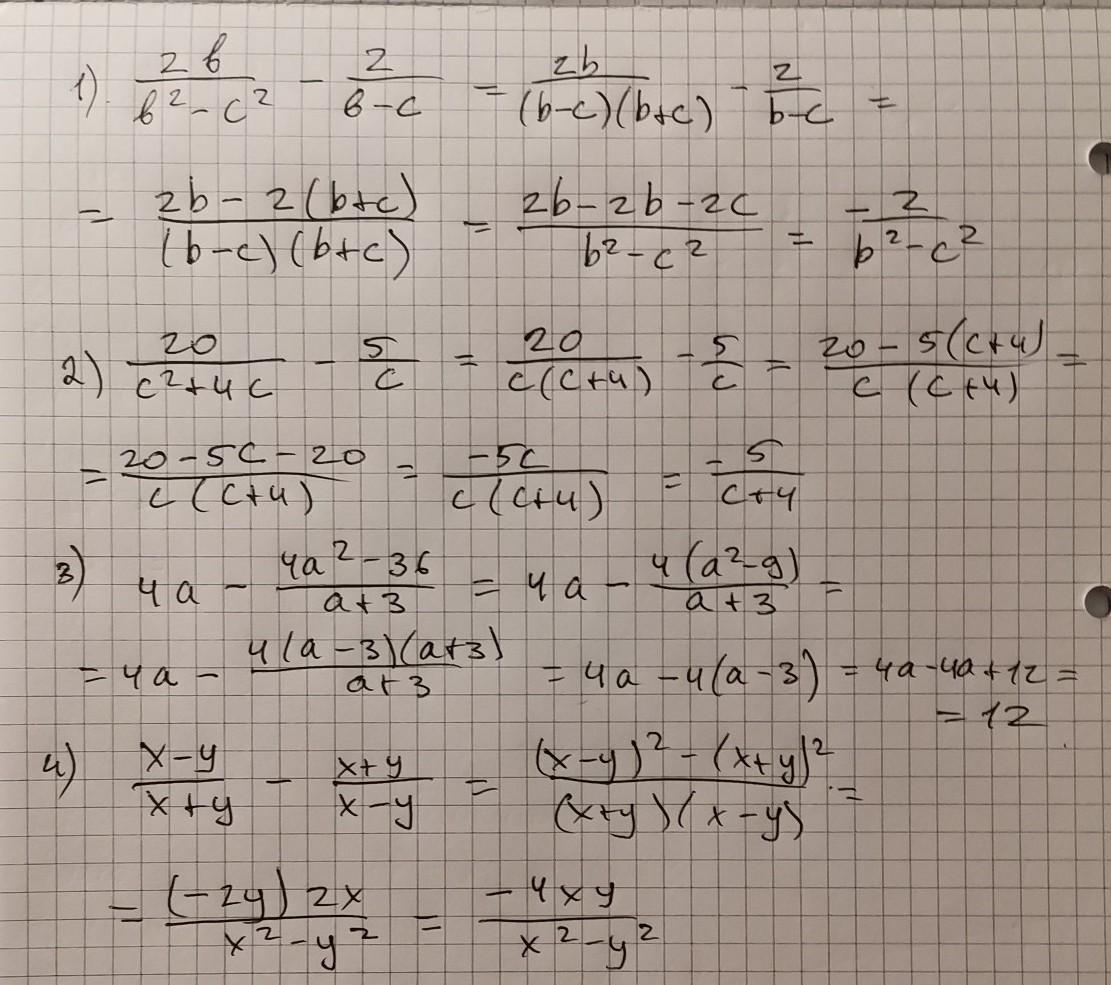 1). \frac{2b}{b^2-c^2} - \frac{2}{b-c} = \frac{2b}{(b-c)(b+c)} - \frac{2}{b-c} =
= \frac{2b-2(b+c)}{(b-c)(b+c)} = \frac{2b-2b-2c}{b^2-c^2} = \frac{-2}{b^2-c^2}
2) \frac{20}{c^2+4c} - \frac{5}{c} = \frac{20}{c(c+4)} - \frac{5}{c} = \frac{20-5(c+4)}{c(c+4)} =
= \frac{20-5c-20}{c(c+4)} = \frac{-5c}{c(c+4)} = \frac{-5}{c+4}
3) 4a - \frac{4a^2-36}{a+3} = 4a - \frac{4(a^2-9)}{a+3} =
= 4a - \frac{4(a-3)(a+3)}{a+3} = 4a-4(a-3) = 4a-4a+12 =
= 12
4) \frac{x-y}{x+y} - \frac{x+y}{x-y} = \frac{(x-y)^2-(x+y)^2}{(x+y)(x-y)} =
= \frac{(-2y)2x}{x^2-y^2} = \frac{-4xy}{x^2-y^2}